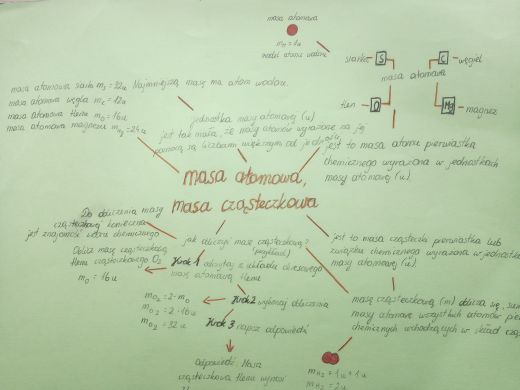 masa atomowa
m₀ = 1u
model atomu wodoru
siarka S
C węgiel
masa atomowa
tlen O
Mg magnez
masa atomowa siarki mₛ = 32u
masa atomowa węgla m_c = 12u
masa atomowa tlenu m₀ = 16u
masa atomowa magnezu m_Mg = 24u
Najmniejszą masę ma atom wodoru.
jednostka masy atomowej (u)
jest tak mała, że masy atomów wyrażone za jej
pomocą są liczbami większymi od jedności
jest to masa atomu pierwiastka
chemicznego wyrażona w jednostkach
masy atomowej (u)
masa atomowa,
masa cząsteczkowa
Do obliczenia masy
cząsteczkowej konieczna
jest znajomość wzoru chemicznego
Oblicz masę cząsteczkową
tlenu cząsteczkowego O₂
m₀ = 16u
jak obliczyć masę cząsteczkową?
(przykład)
Krok 1 odczytaj z układu okresowego
masę atomową tlenu
m_O₂ = 2·m₀
m_O₂ = 2·16u
m_O₂ = 32u
Krok 2 wykonaj obliczenia
Krok 3 napisz odpowiedź
Odpowiedź: Masa
cząsteczkowa tlenu wynosi
jest to masa cząsteczki pierwiastka lub
związku chemicznego wyrażona w jednostkach
masy atomowej (u)
masę cząsteczkową (m) oblicza się,
masy atomowe wszystkich atomów
chemicznych wchodzących w skład
m_H₂ = 1u + 1u
m_H₂ = 2u